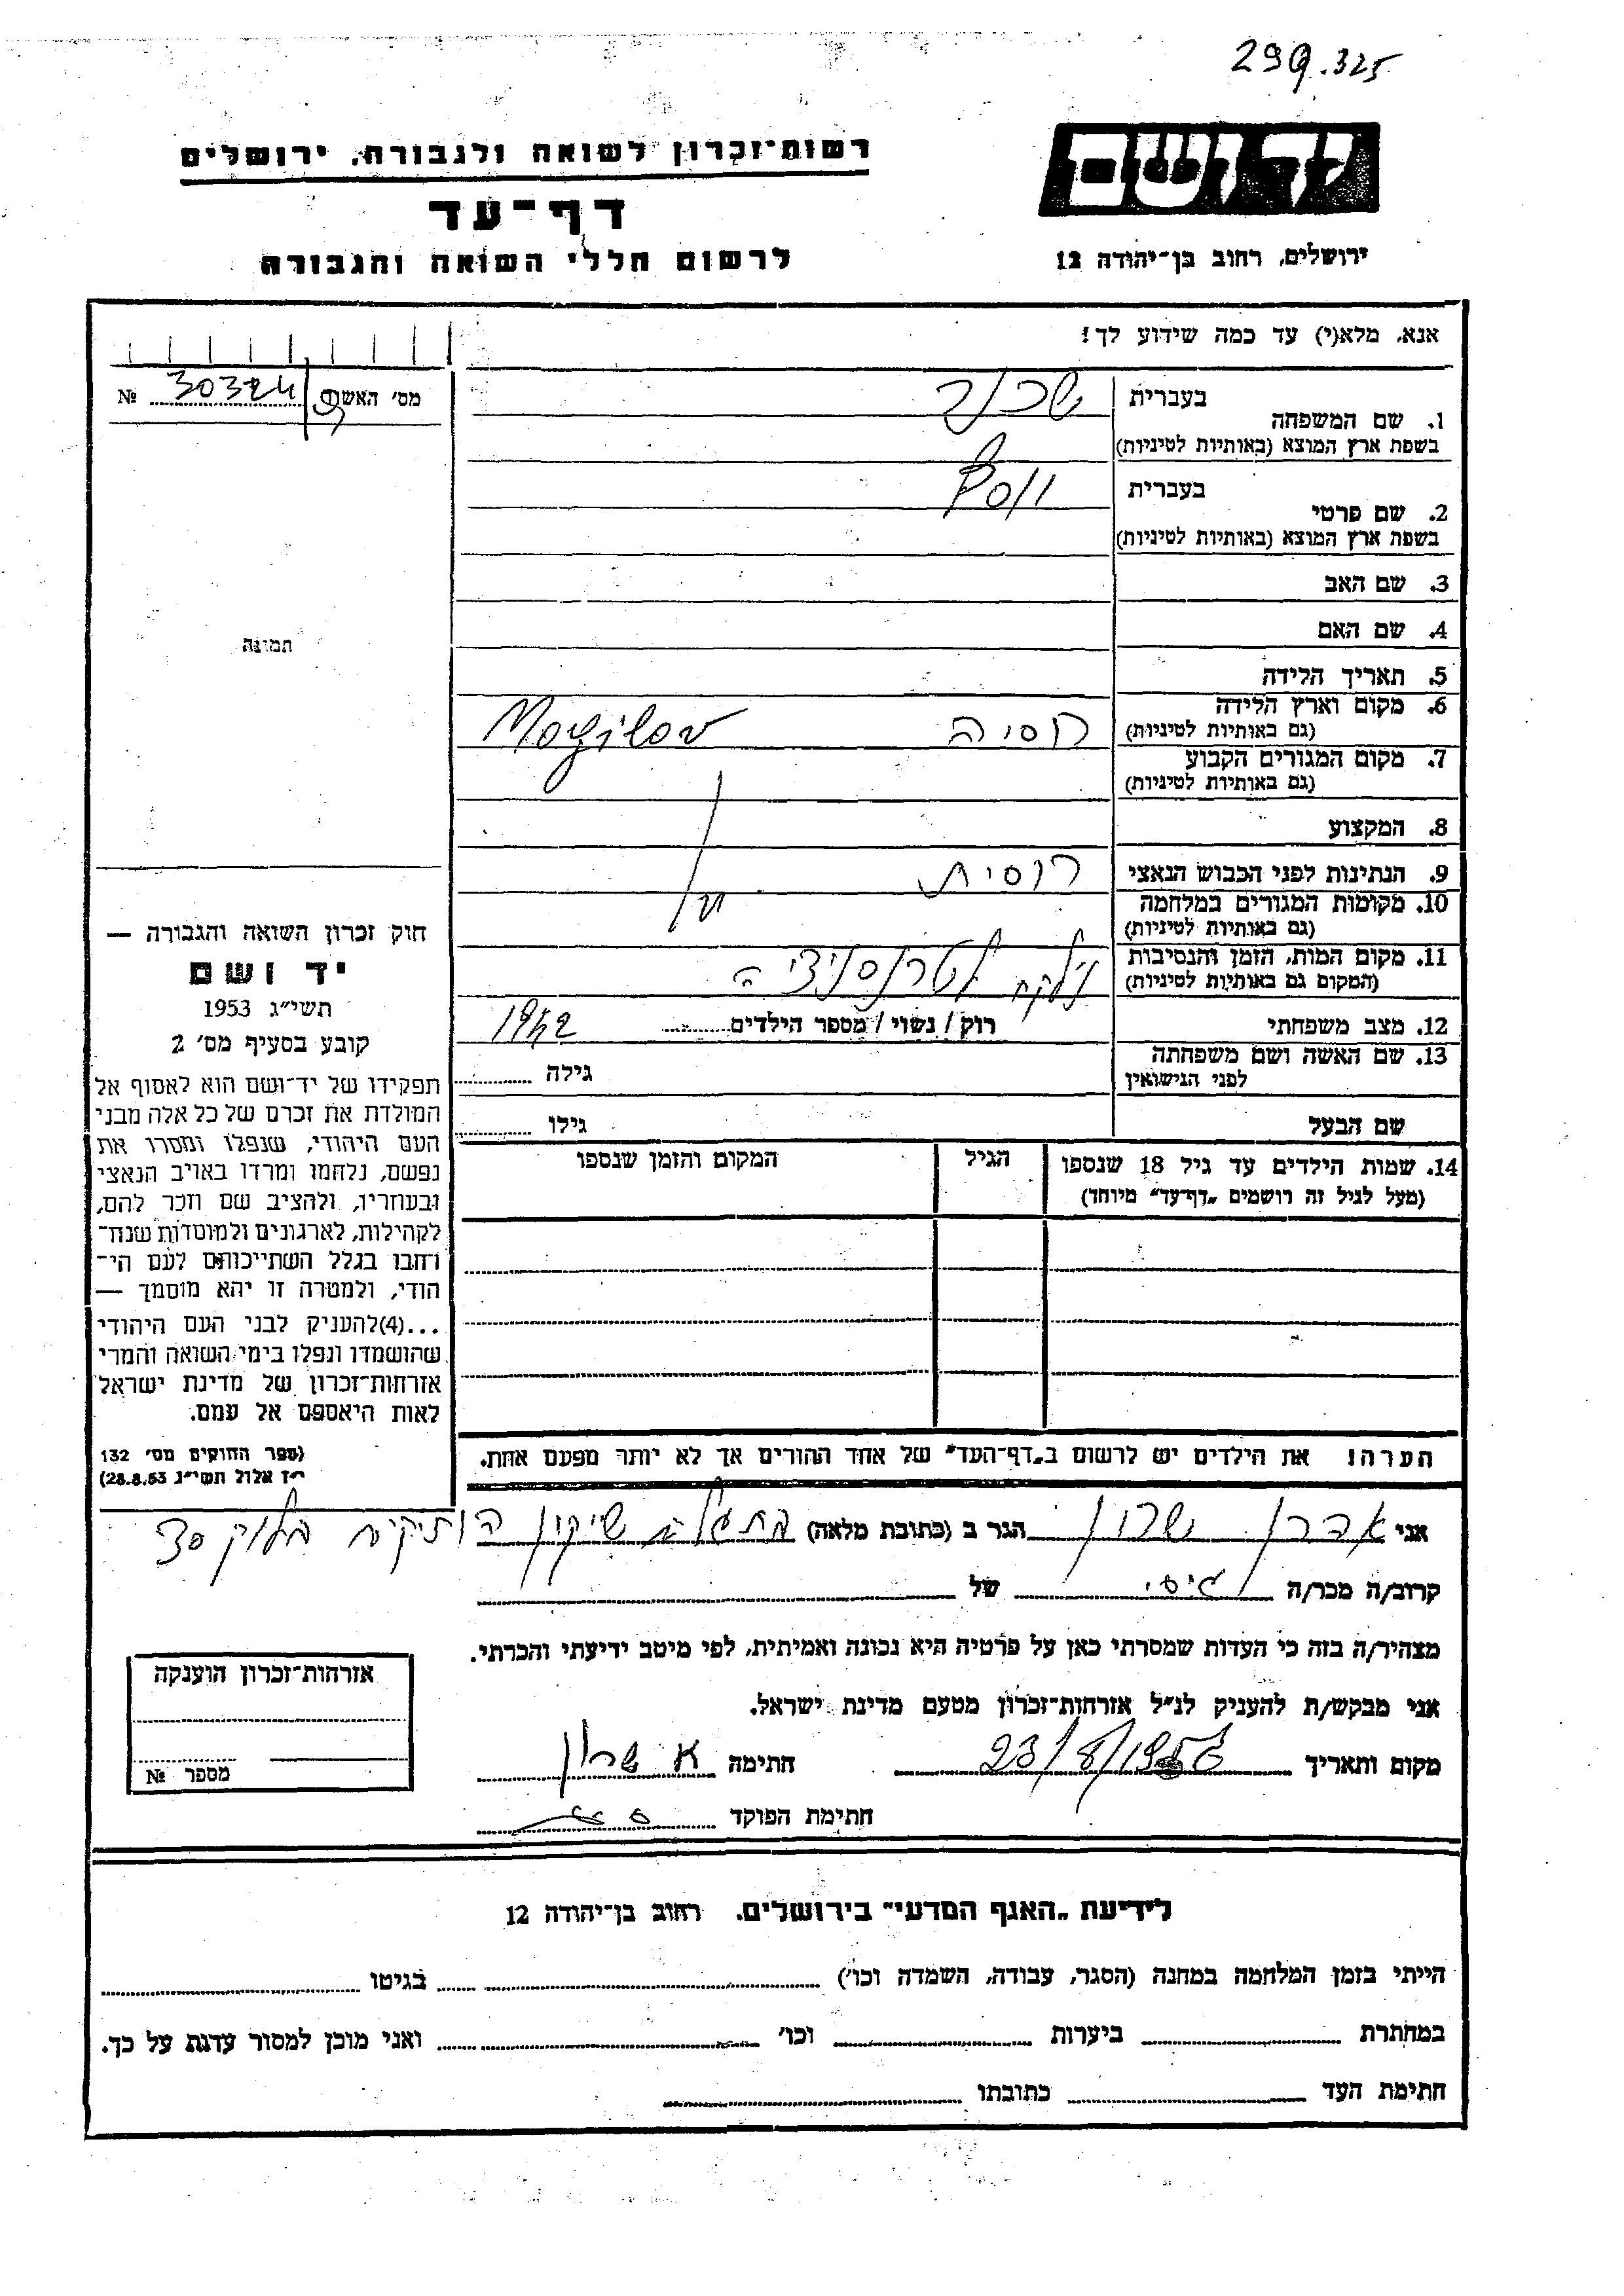 299.325
רשות־זכרון לשואה ולגבורה, ירושלים
דף־עד
לרשום חללי השואה והגבורה
יד ושם
ירושלים, רחוב בן־יהודה 12
אנא, מלא(י) עד כמה שידוע לך!
מס׳ האשה № 30324
1. שם המשפחה בעברית
בשפת ארץ המוצא (באותיות לטיניות)
2. שם פרטי בעברית יוסף
בשפת ארץ המוצא (באותיות לטיניות)
3. שם האב
4. שם האם
5. תאריך הלידה
6. מקום וארץ הלידה רוסיה Mogilov
(גם באותיות לטיניות)
7. מקום המגורים הקבוע
(גם באותיות לטיניות)
8. המקצוע
9. הנתינות לפני הכבוש הנאצי רוסית
10. מקומות המגורים במלחמה
(גם באותיות לטיניות)
11. מקום המות, הזמן והנסיבות נלקח לטרנסניצריה
(המקום גם באותיות לטיניות)
12. מצב משפחתי רוק / נשוי / מספר הילדים 1942
13. שם האשה ושם משפחתה
לפני הנישואין גילה
שם הבעל גילו
14. שמות הילדים עד גיל 18 שנספו הגיל המקום והזמן שנספו
(מעל לגיל זה רושמים „דף־עד״ מיוחד)
הערה! את הילדים יש לרשום ב„דף־העד״ של אחד ההורים אך לא יותר מפעם אחת.
תמונה
חוק זכרון השואה והגבורה —
יד ושם
תשי״ג 1953
קובע בסעיף מס׳ 2
תפקידו של יד־ושם הוא לאסוף אל
המולדת את זכרם של כל אלה מבני
העם היהודי, שנפלו ומסרו את
נפשם, נלחמו ומרדו באויב הנאצי
ובעוזריו, ולהציב שם וזכר להם,
לקהילות, לארגונים ולמוסדות שנח־
רחבו בגלל השתייכותם לעם הי־
הודי, ולמטרה זו יהא מוסמך —
...(4)להעניק לבני העם היהודי
שהושמדו ונפלו בימי השואה והמרי
אזרחות־זכרון של מדינת ישראל
לאות היאספם אל עמם.
(ספר החוקים מס׳ 132
י״ז אלול תשי״ג 28.8.53)
אני אהרן שרון הגר ב (כתובת מלאה) שיכון הותיקים בלוק 30
קרוב/ה מכר/ה גיסי של
מצהיר/ה בזה כי העדות שמסרתי כאן על פרטיה היא נכונה ואמיתית, לפי מיטב ידיעתי והכרתי.
אני מבקש/ת להעניק לנ״ל אזרחות־זכרון מטעם מדינת ישראל.
מקום ותאריך 23/8/1956 חתימה א שרון
חתימת הפוקד
אזרחות־זכרון הוענקה
מספר №
לידיעת „האגף המדעי״ בירושלים, רחוב בן־יהודה 12
הייתי בזמן המלחמה במחנה (הסגר, עבודה, השמדה וכו׳) בגיטו
במחתרת ביערות וכו׳ ואני מוכן למסור עדות על כך.
חתימת העד כתובתו